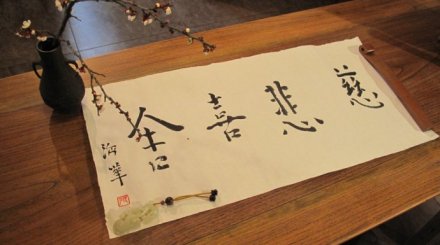 慈悲喜舍
海華